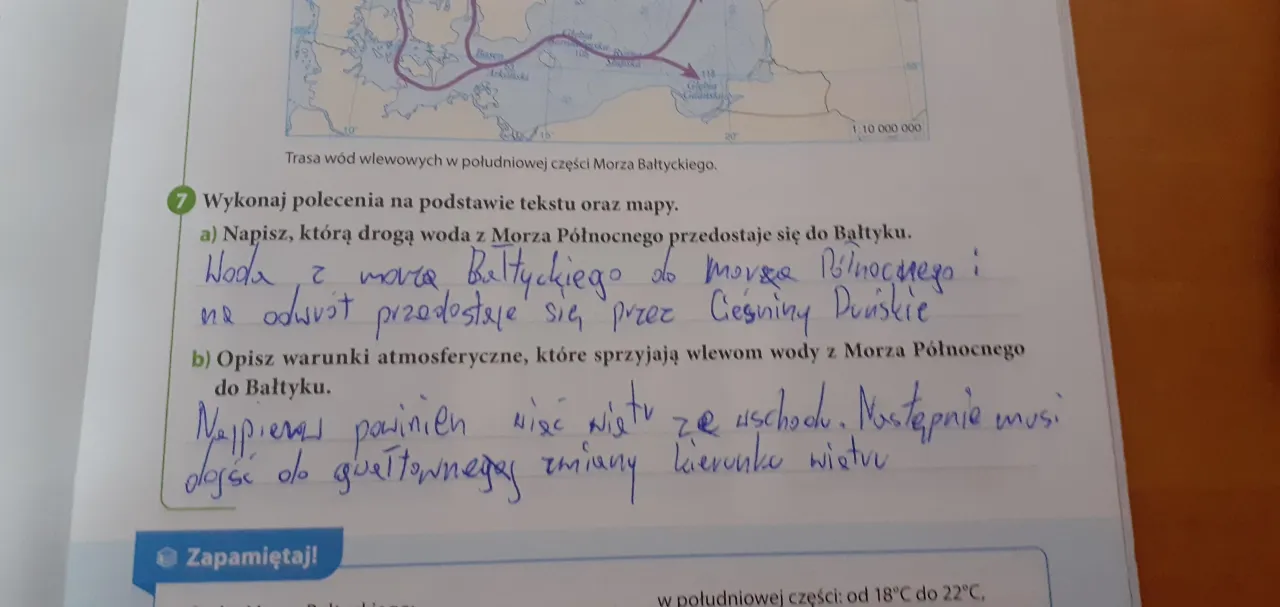 Basen
Arkoński
Głębia
118
Głębia
Gdańska
10°
15°
20°
1:10 000 000
Trasa wód wlewowych w południowej części Morza Bałtyckiego.
7 Wykonaj polecenia na podstawie tekstu oraz mapy.
a) Napisz, którą drogą woda z Morza Północnego przedostaje się do Bałtyku.
Woda z morza Bałtyckiego do morza Północnego i
na odwrót przedostaje się przez Cieśniny Duńskie
b) Opisz warunki atmosferyczne, które sprzyjają wlewom wody z Morza Północnego
do Bałtyku.
Najpierw powinien wiać wiatr ze wschodu. Następnie musi
dojść do gwałtownej zmiany kierunku wiatru
Zapamiętaj!
w południowej części: od 18°C do 22°C,